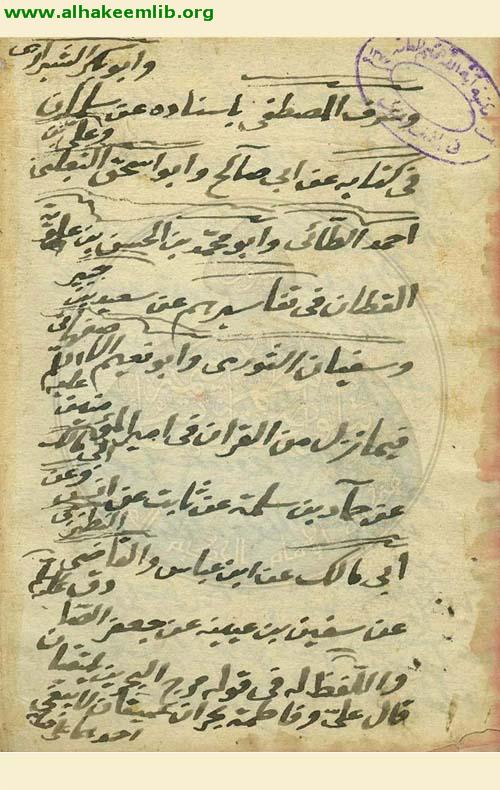 www.alhakeemlib.org
وابو بكر الشيرازي
وشرف المصطفى باسناده عن سلمان
في كتابه عن ابي صالح وابو اسحق الثعلبي وعلي بن
احمد الطائي وابو محمد بن الحسن بن علوية
القطان في تفاسيرهم عن سعيد بن جبير
وسفيان الثوري وابو نعيم الاصفهاني
فيما نزل من القران في امير المؤمنين عليه
عن حماد بن سلمة عن ثابت عن انس وعن
ابي مالك عن ابن عباس والقاضي النطنزي
عن سفين بن عيينه عن جعفر الصادق
واللفظ له في قوله مرج البحرين يلتقيان
قال علي وفاطمة بحران عميقان لا يبغي
احدهما على